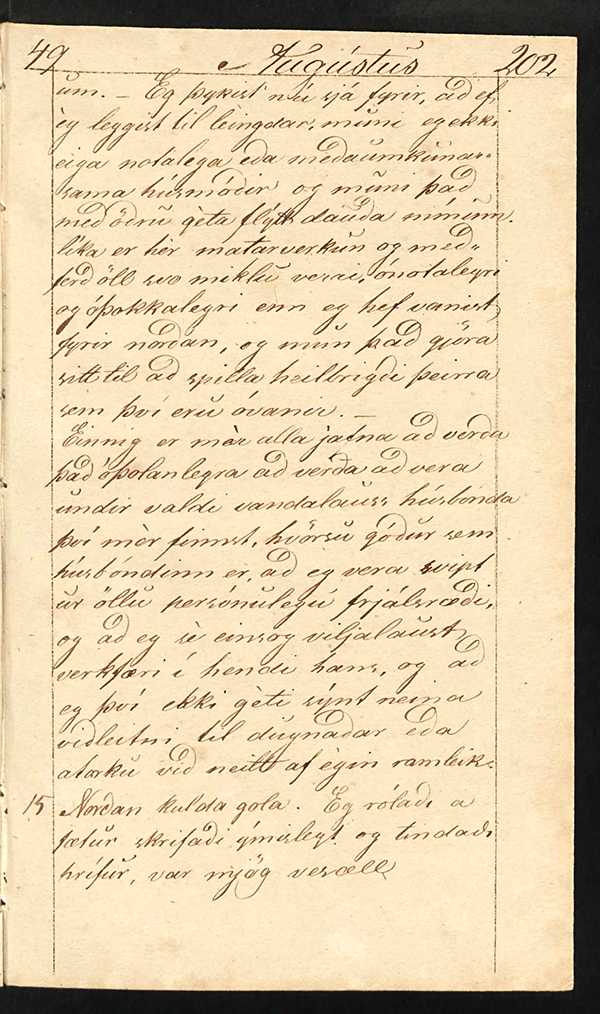 49 Augústus 202
um. - Eg þykist nú sjá fyrir, að ef
èg leggist til leingdar, muni eg ekki
eiga notalega eða meðaumkunar-
sama húsmóðir og muni það
með öðru geta flýtt dauða mínum.
líka er hèr matarverkun og með„
ferð öll svo miklu verri, ónotalegri
og óþokkalegri enn eg hef vanist
fyrir norðan, og mun það gjöra
sitt til að spilla heilbrigði þeirra
sem því eru óvanir. -
Einnig er mèr alla jafna að verða
það óþolanlegra að verða að vera
undir valdi vandalauss húsbónda
því mèr finnst, hvörsu góður sem
húsbóndinn er, að eg vera svipt
úr öllu persónulegu frjálsræði,
og að eg sè einsog viljalaust
verkfæri í hendi hans, og að
eg því ekki geti sýnt neina
viðleitni til dugnaðar eða
atorku við neitt af egin ramleik.
15 Norðan kulda gola. Eg rólaði a
fætur skrifaði ýmislegt og tindaði
hrífur, var mjög vesæll